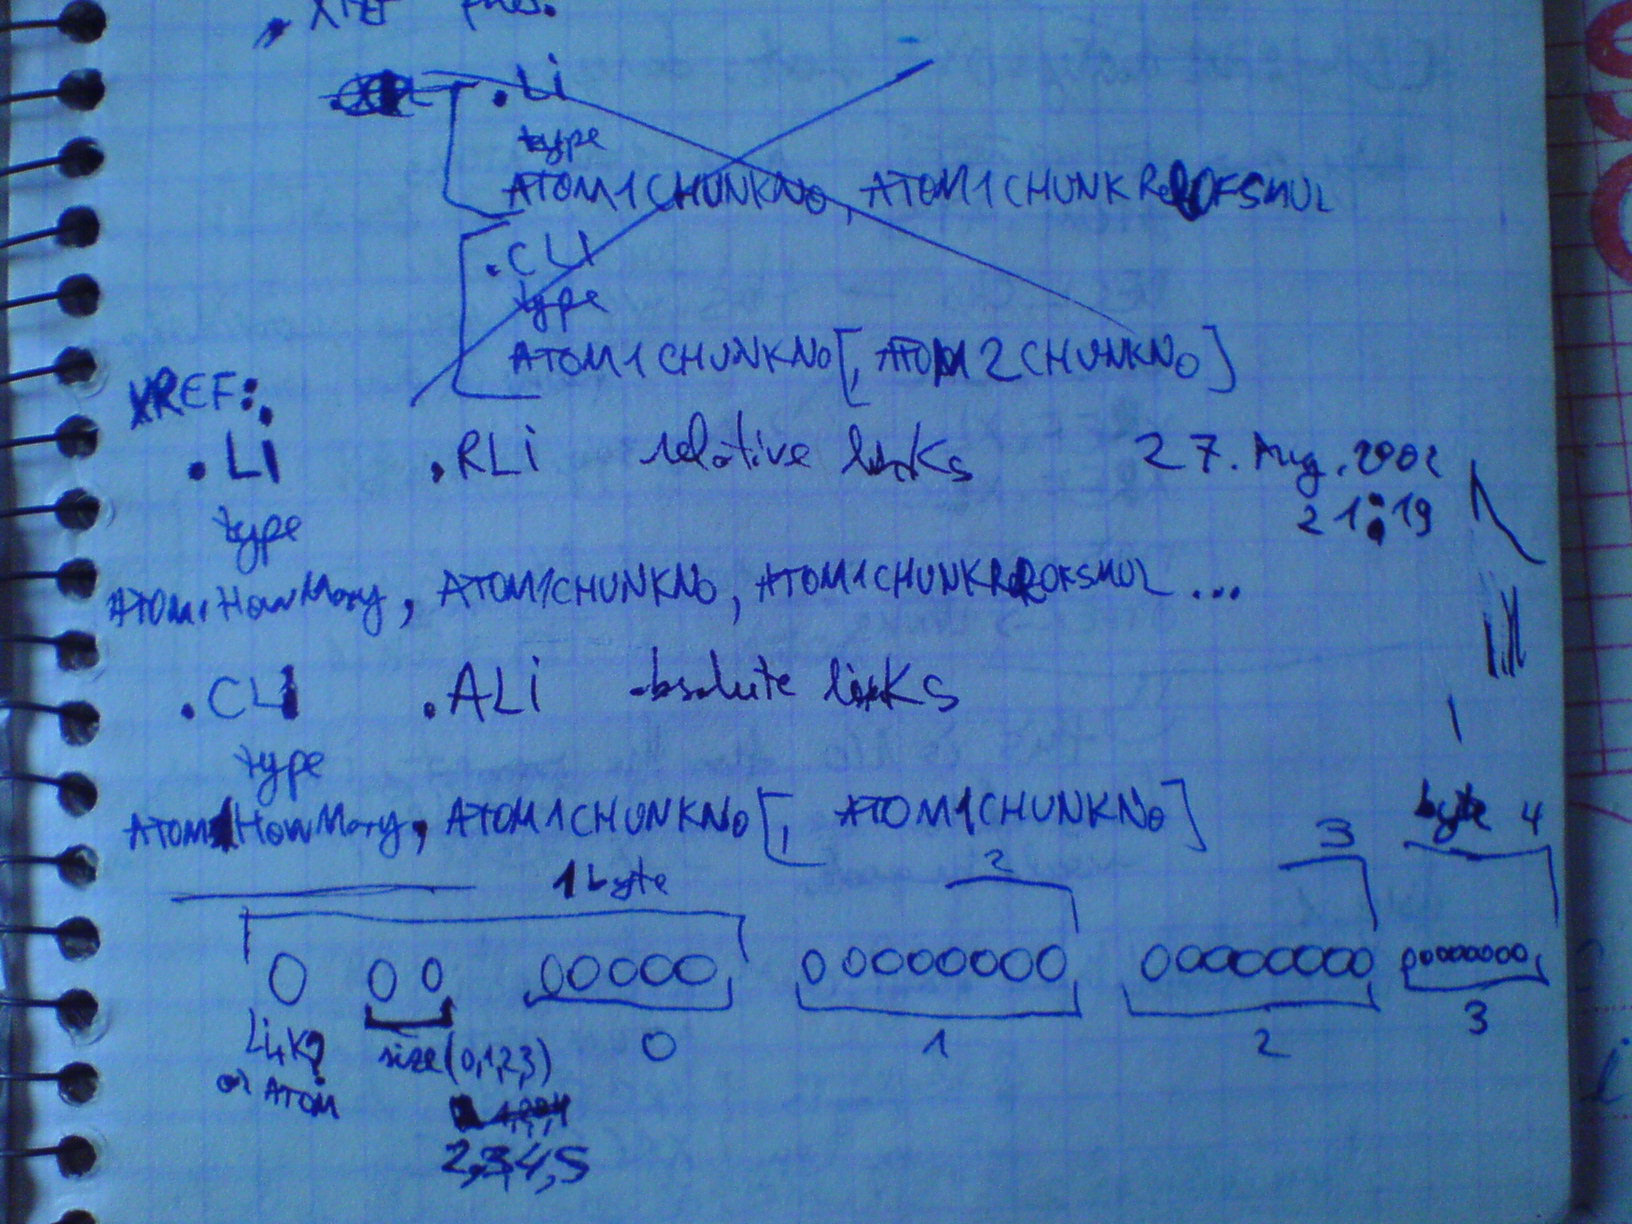 .Li
type
ATOM1CHUNKNo, ATOM1CHUNKRelOFSMUL
.CLI
type
ATOM1CHUNKNo[, ATOM2CHUNKNo]
XREF:
.Li .RLi relative links 27. Aug. 2002
type 21:19
ATOM1HowMany, ATOM1CHUNKNo, ATOM1CHUNKRelOFSMUL ...
.CLI .ALi absolute links
type
ATOM1HowMany, ATOM1CHUNKNo[, ATOM1CHUNKNo]
1 byte 2 3 byte 4
0 00 00000 00000000 00000000 00000000
Link? size(0,1,2,3) 0 1 2 3
or ATOM
2,3,4,5